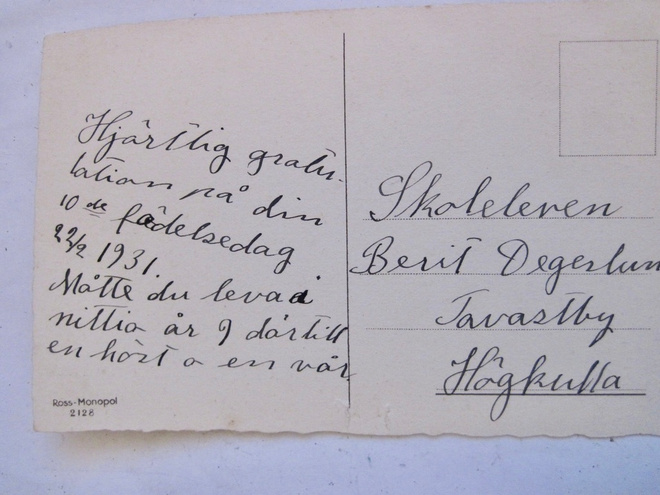 Hjärtlig gratu-
lation på din
10de födelsedag
22/2 1931.
Måtte du leva i
nittio år o därtill
en höst o en vår.
Ross-Monopol
2128
Skoleleven
Berit Degerlun
Tavastby
Högkulla